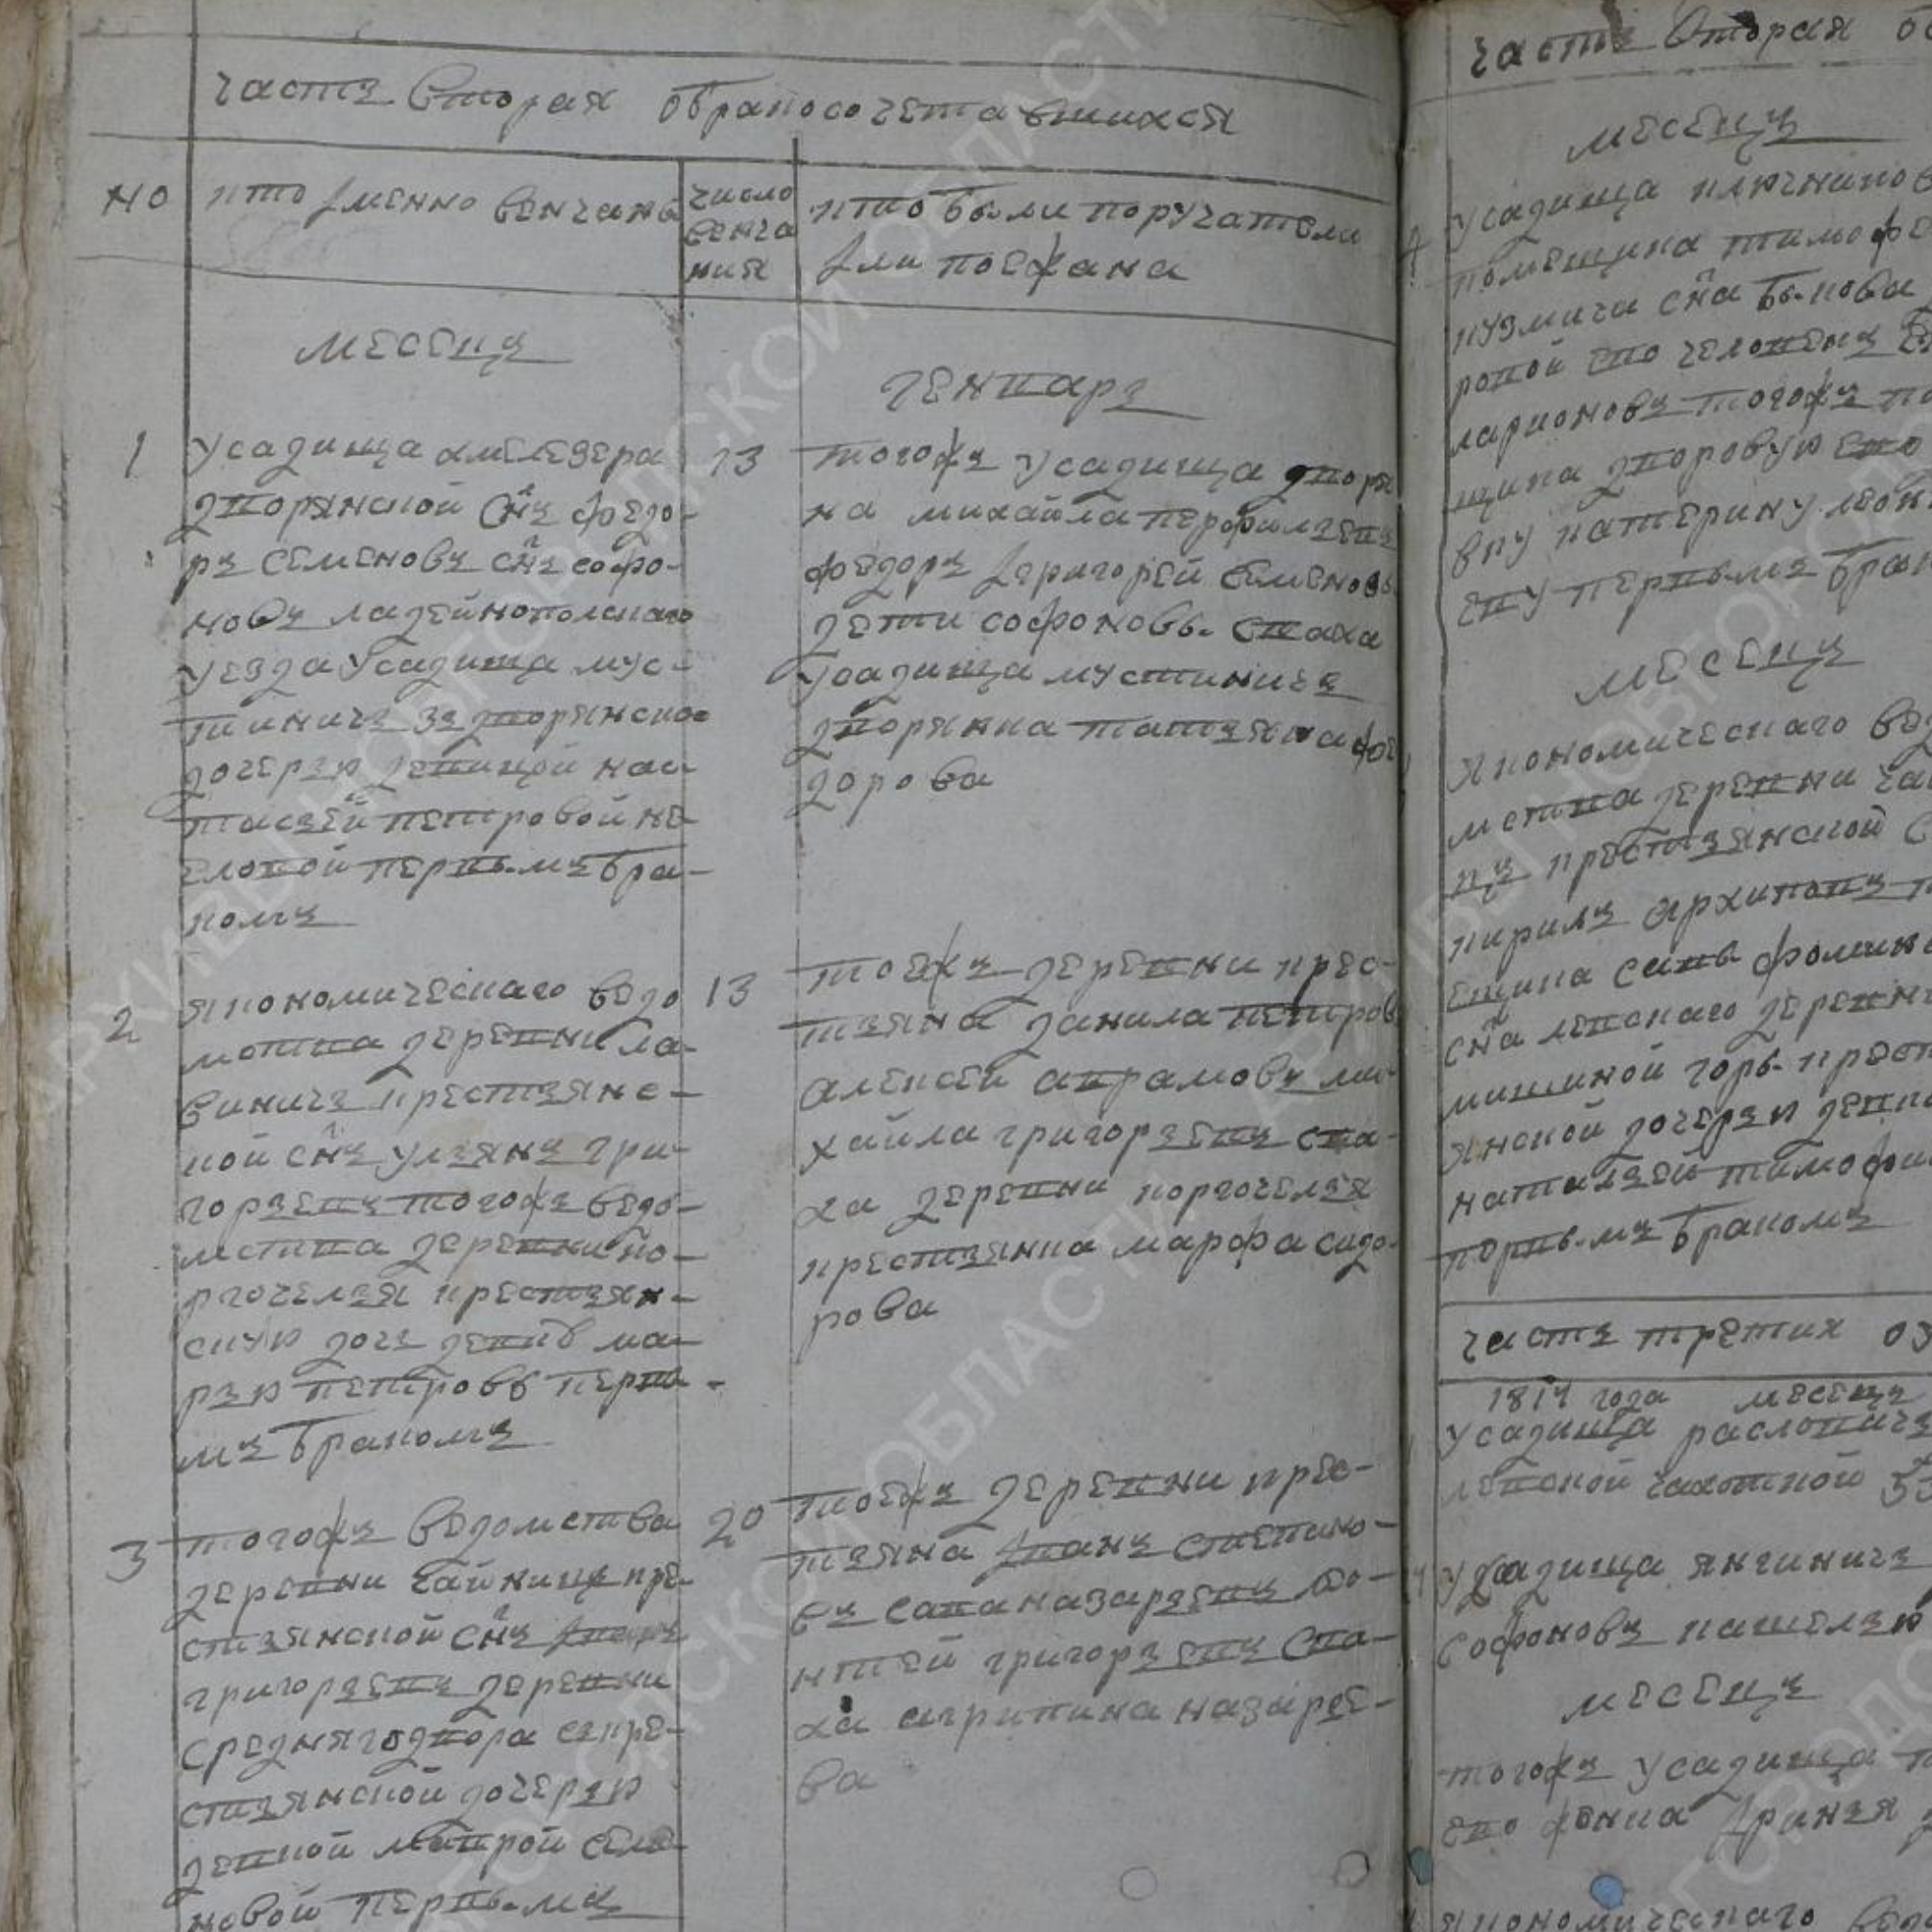 часть вторая обракосочетавшихся
но
кто iменно венчанъ
число
венча
ния
кто были поручатели
iли поезжана
месецъ
генварь
1
усадища
дворянской сн̃ъ федо-
ръ семеновъ сн̃ъ софо-
новъ ладейнополскаго
уезда усадища мус-
тиничь зъ дворянско
дочерью девицой нас
тасьей петровой не
еловой первымъ бра-
комъ
13
тогожъ усадища дворя
на михайла перфильевъ
федоръ iгригорей семеновы
дети софоновы сваха
усадища мустиничь
дворянка татьяна фе
дорова
2
якономическаго ведо
мства деревни ла-
виничь крестьянс-
кой сн̃ъ ульянъ гри-
горьевъ тогожъ ведо-
мства деревни ко-
ргочелья крестьян-
скую дочь девку ма-
рью петрову первы-
мъ бракомъ
13
тоежъ деревни крес-
тьяна данила петров
алексей аврамовъ ми
хайла григорьевъ сва-
ха деревни коргочелья
крестьянка марфа сидо-
рова
3
тогожъ ведомства
деревни чайницъ кре-
стьянской сн̃ъ
григорьевъ деревни
среднягодвора скре-
стьянской дочерью
девкой маврой семе
новой первымъ
20
тоежъ деревни крес-
тьяна iванъ степано-
въ сава назарьевъ ло-
нтей григорьевъ сва-
ха агрипина назырее-
ва
часть вторая об
месецъ
4
усадища ключников
помещика тимофе
кузмича сн̃а быкова
ровой ево человекъ
ларионовъ тогожъ по
щика дворовую ево
вку катерину леон
еву первымъ брак
месецъ
якономическаго вед
мства деревни ча
цъ крестьянской с
кирилъ архиповъ
сн̃а деревн
горы крест
янской дочерью девк
натальей тимофи
первымъ бракомъ
часть третия
1814 года месецъ
усадища расловичь
усадища янгиничь
софоновъ кашелью
месецъ
тогожъ усадища
ево жонка iринья
якономическаго вед
АРХИВЫ НОВГОРОДСКОЙ ОБЛАСТИ